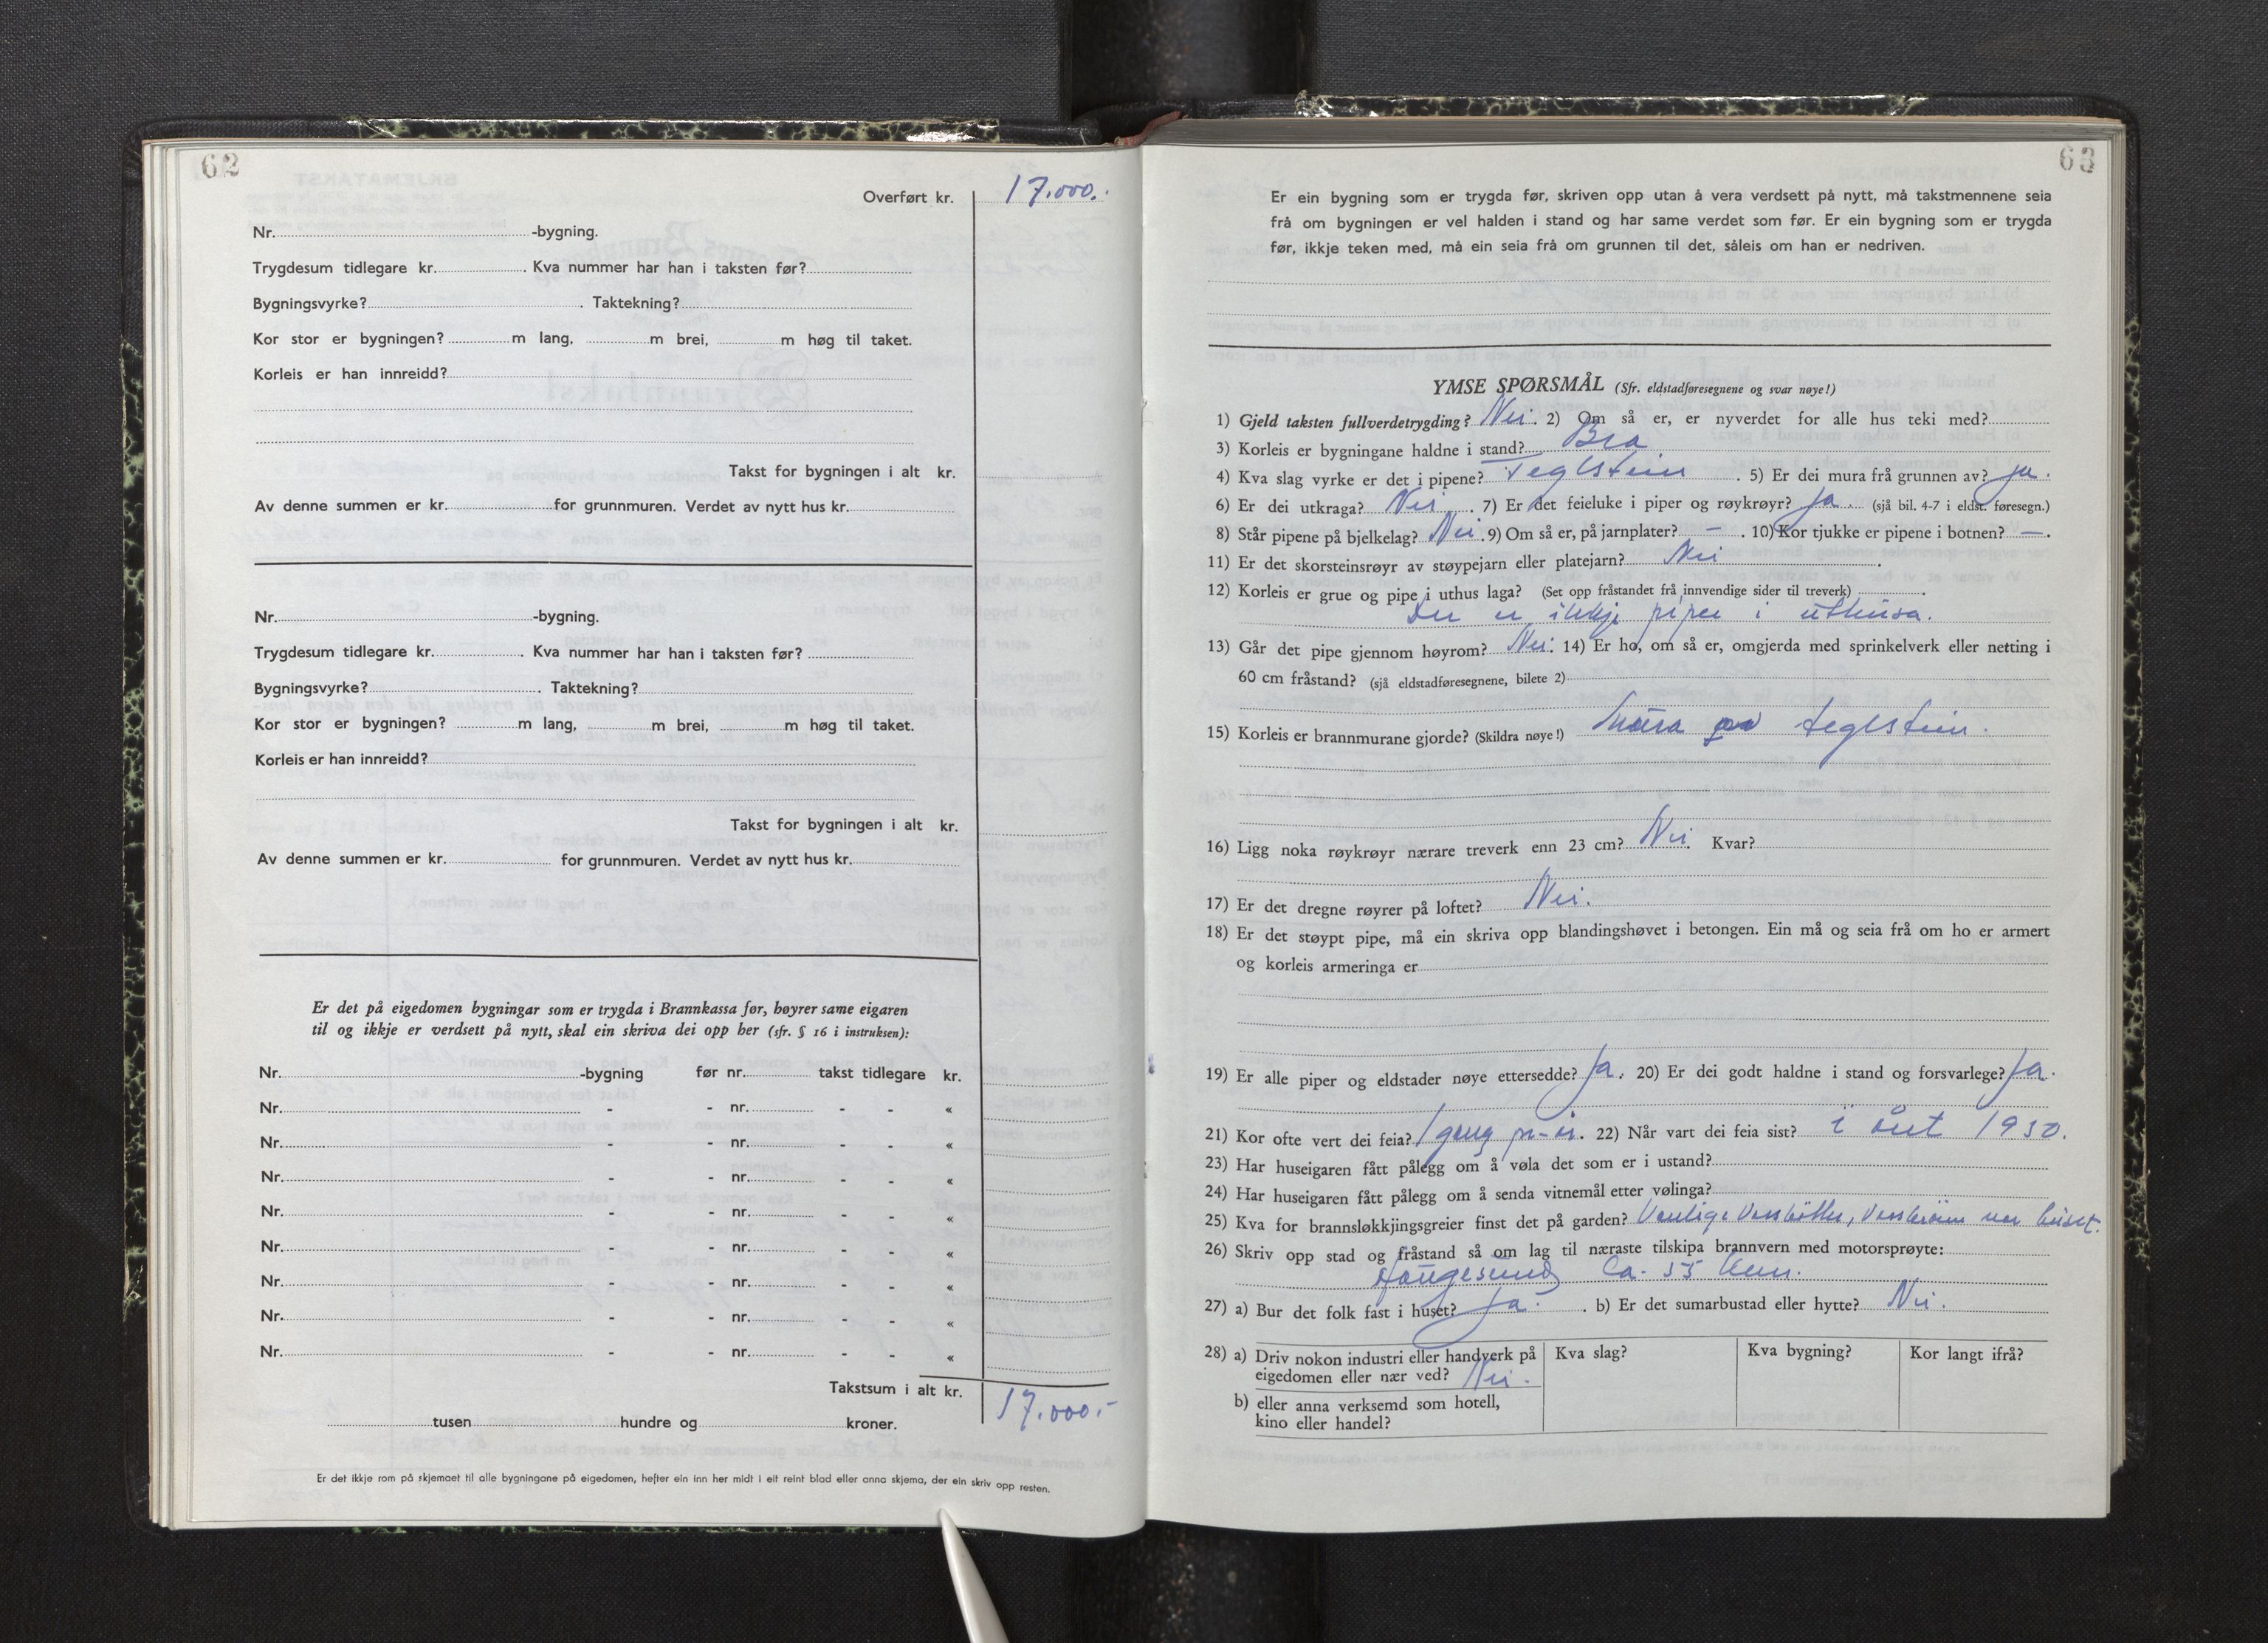 62
Overført kr. 17.000.-
Nr. -bygning.
Trygdesum tidlegare kr. . Kva nummer har han i taksten før?
Bygningsvyrke? . Taktekning?
Kor stor er bygningen? m lang, m brei, m høg til taket.
Korleis er han innreidd?
Takst for bygningen i alt kr.
Av denne summen er kr. for grunnmuren. Verdet av nytt hus kr.
Nr. -bygning.
Trygdesum tidlegare kr. . Kva nummer har han i taksten før?
Bygningsvyrke? . Taktekning?
Kor stor er bygningen? m lang, m brei, m høg til taket.
Korleis er han innreidd?
Takst for bygningen i alt kr.
Av denne summen er kr. for grunnmuren. Verdet av nytt hus kr.
Er det på eigedomen bygningar som er trygda i Brannkassa før, høyrer same eigaren
til og ikkje er verdsett på nytt, skal ein skriva dei opp her (sfr. § 16 i instruksen):
Nr. -bygning før nr. takst tidlegare kr.
Nr. - - nr. - - «
Nr. - - nr. - - «
Nr. - - nr. - - «
Nr. - - nr. - - «
Nr. - - nr. - - «
Nr. - - nr. - - «
Nr. - - nr. - - «
Nr. - - nr. - - «
Takstsum i alt kr. 17.000.-
tusen hundre og kroner.
Er det ikkje rom på skjemaet til alle bygningane på eigedomen, hefter ein inn her midt i eit reint blad eller anna skjema, der ein skriv opp resten.
63
Er ein bygning som er trygda før, skriven opp utan å vera verdsett på nytt, må takstmennene seia
frå om bygningen er vel halden i stand og har same verdet som før. Er ein bygning som er trygda
før, ikkje teken med, må ein seia frå om grunnen til det, såleis om han er nedriven.
YMSE SPØRSMÅL (Sfr. eldstadføresegnene og svar nøye!)
1) Gjeld taksten fullverdetrygding? Nei. 2) Om så er, er nyverdet for alle hus teki med?
3) Korleis er bygningane haldne i stand? Bra
4) Kva slag vyrke er det i pipene? Teglstein . 5) Er dei mura frå grunnen av? ja.
6) Er dei utkraga? Nei . 7) Er det feieluke i piper og røykrøyr? ja (sjå bil. 4-7 i eldst. føresegn.)
8) Står pipene på bjelkelag? Nei. 9) Om så er, på jarnplater? - . 10) Kor tjukke er pipene i botnen? - .
11) Er det skorsteinsrøyr av støypejarn eller platejarn? Nei .
12) Korleis er grue og pipe i uthus laga? (Set opp fråstandet frå innvendige sider til treverk) .
Der er ikkje piper i uthusa.
13) Går det pipe gjennom høyrom? Nei. 14) Er ho, om så er, omgjerda med sprinkelverk eller netting i
60 cm fråstand? (sjå eldstadføresegnene, bilete 2)
15) Korleis er brannmurane gjorde? (Skildra nøye!) Mura av teglstein.
16) Ligg noka røykrøyr nærare treverk enn 23 cm? Nei. Kvar?
17) Er det dregne røyrer på loftet? Nei.
18) Er det støypt pipe, må ein skriva opp blandingshøvet i betongen. Ein må og seia frå om ho er armert
og korleis armeringa er
19) Er alle piper og eldstader nøye ettersedde? Ja. 20) Er dei godt haldne i stand og forsvarlege? Ja.
21) Kor ofte vert dei feia? 1 gang pr. år. 22) Når vart dei feia sist? i året 1950.
23) Har huseigaren fått pålegg om å vøla det som er i ustand?
24) Har huseigaren fått pålegg om å senda vitnemål etter vølinga?
25) Kva for brannsløkkjingsgreier finst det på garden? Vanlige Vassbøtter, huset.
26) Skriv opp stad og fråstand så om lag til næraste tilskipa brannvern med motorsprøyte:
Haugesund ca. 55 km.
27) a) Bur det folk fast i huset? Ja. . b) Er det sumarbustad eller hytte? Nei.
28) a) Driv nokon industri eller handverk på Kva slag? Kva bygning? Kor langt ifrå?
eigedomen eller nær ved? Nei.
b) eller anna verksemd som hotell,
kino eller handel?